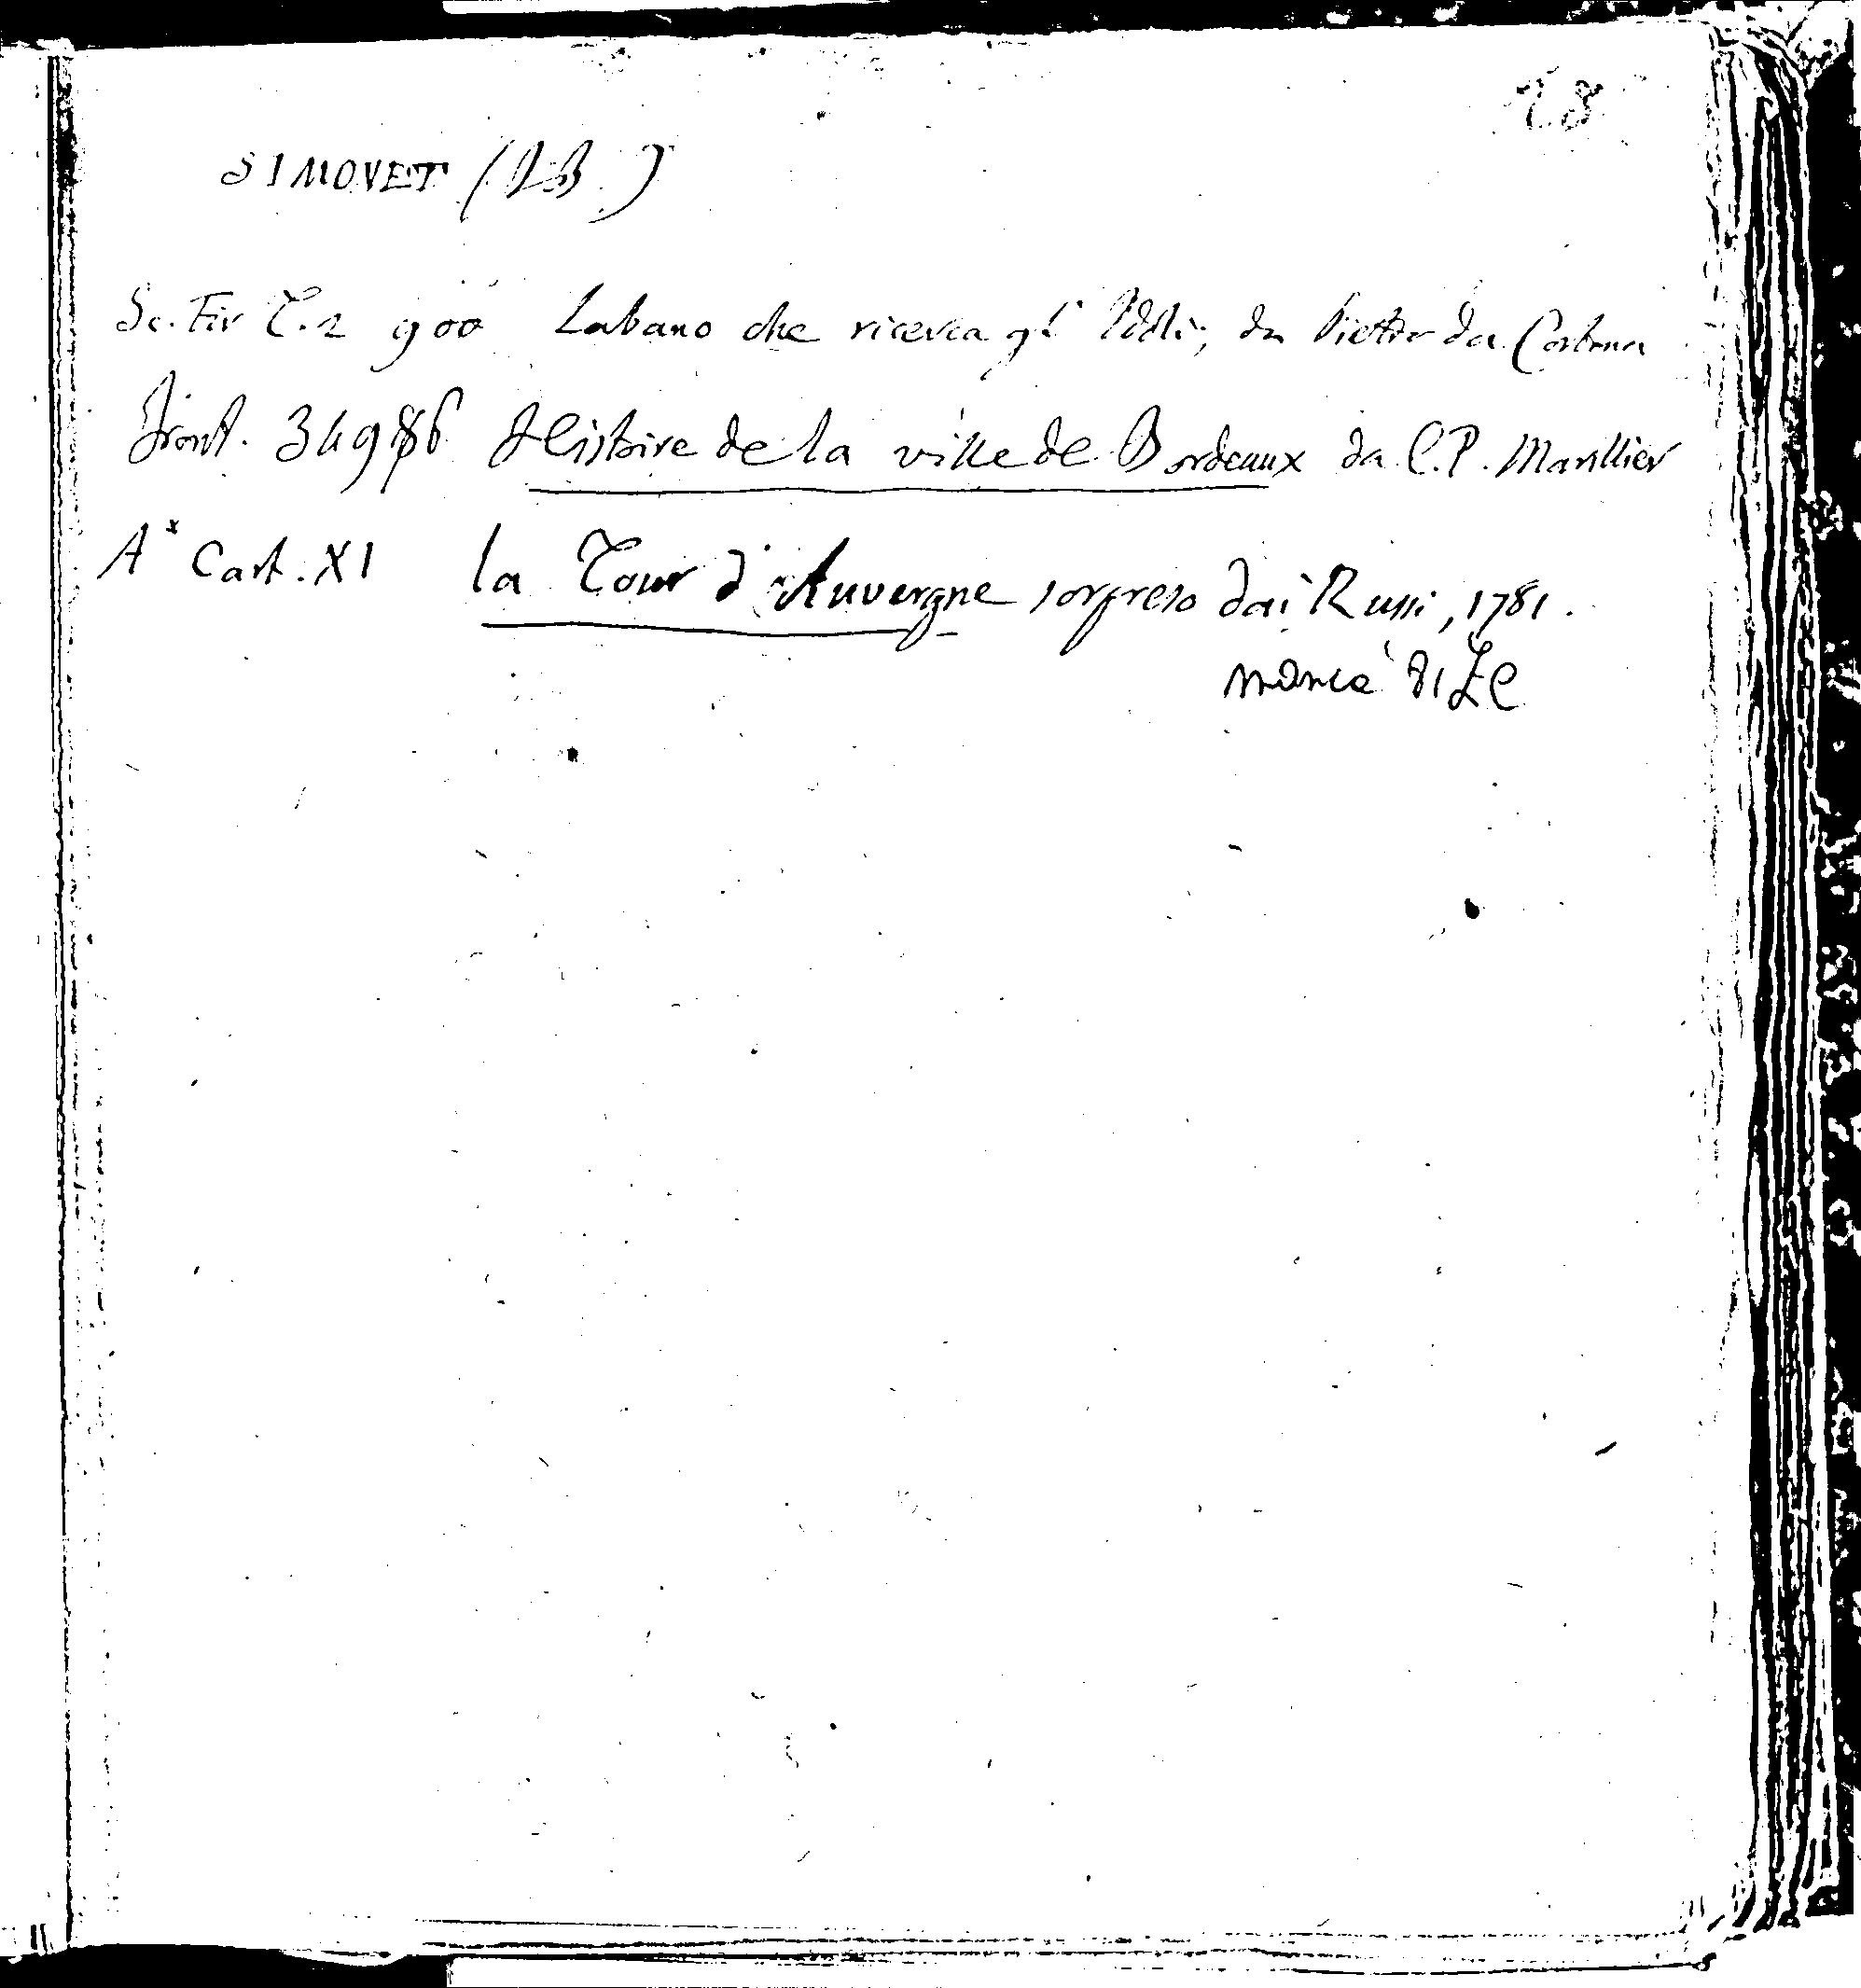 28
SIMOVET (J.B.)
Sc. Fir T. 2 900 Labano che ricerca gl' Idoli; da Pietro da Cortona
Front. 34986 Histoire de la ville de Bordeaux da C.P. Marillier
A* Cart. XI la Tour d'Auvergne sorpreso dai Russi, 1781.